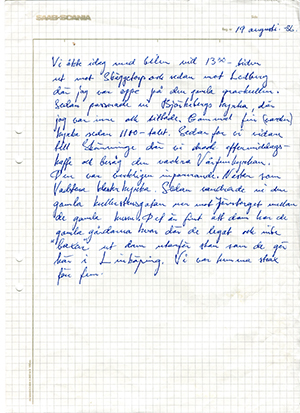 SAAB-SCANIA
19 augusti -86.
Vi åkte idag med bilen vid 13 00 -tiden
ut mot Skäggetorp och sedan mot Ledberg
där jag var uppe på den gamla gravkullen.
Sedan passerade vi Björkebergs kyrka, där
jag var inne och tittade. Gammal fin
kyrka sedan 1100-talet. Sedan for vi vidare
till där vi drack eftermiddags-
kaffe och besåg den vackra Vårfrukyrkan.
Den var verkligen imponerande. Nästan som
Vadstena klosterkyrka. Sedan vandrade vi den
gamla kullerstensgatan ner mot järntorget mellan
de gamla husen. Det är fint att dom har de
gamla gårdarna kvar där de legat och inte
ut dem utanför stan som de gör
här i Linköping. Vi var hemma strax
före fem.